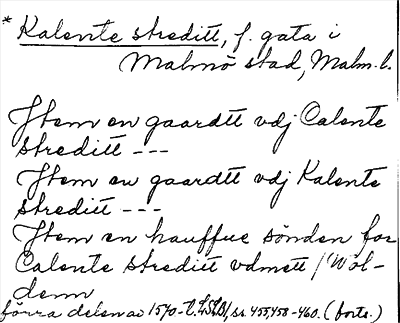 * Kalente streditt, f. gata i
Malmö stad, Malm. l.
Item en gaardtt vdj Calente
streditt ---
Item en gaardtt vdj Kalente
streditt ---
Item en hauffue sönden for
Calente streditt vdmett / Wol-
denn
förra delen av 1570-t. LSLB, ss. 455, 458-460. (forts.)